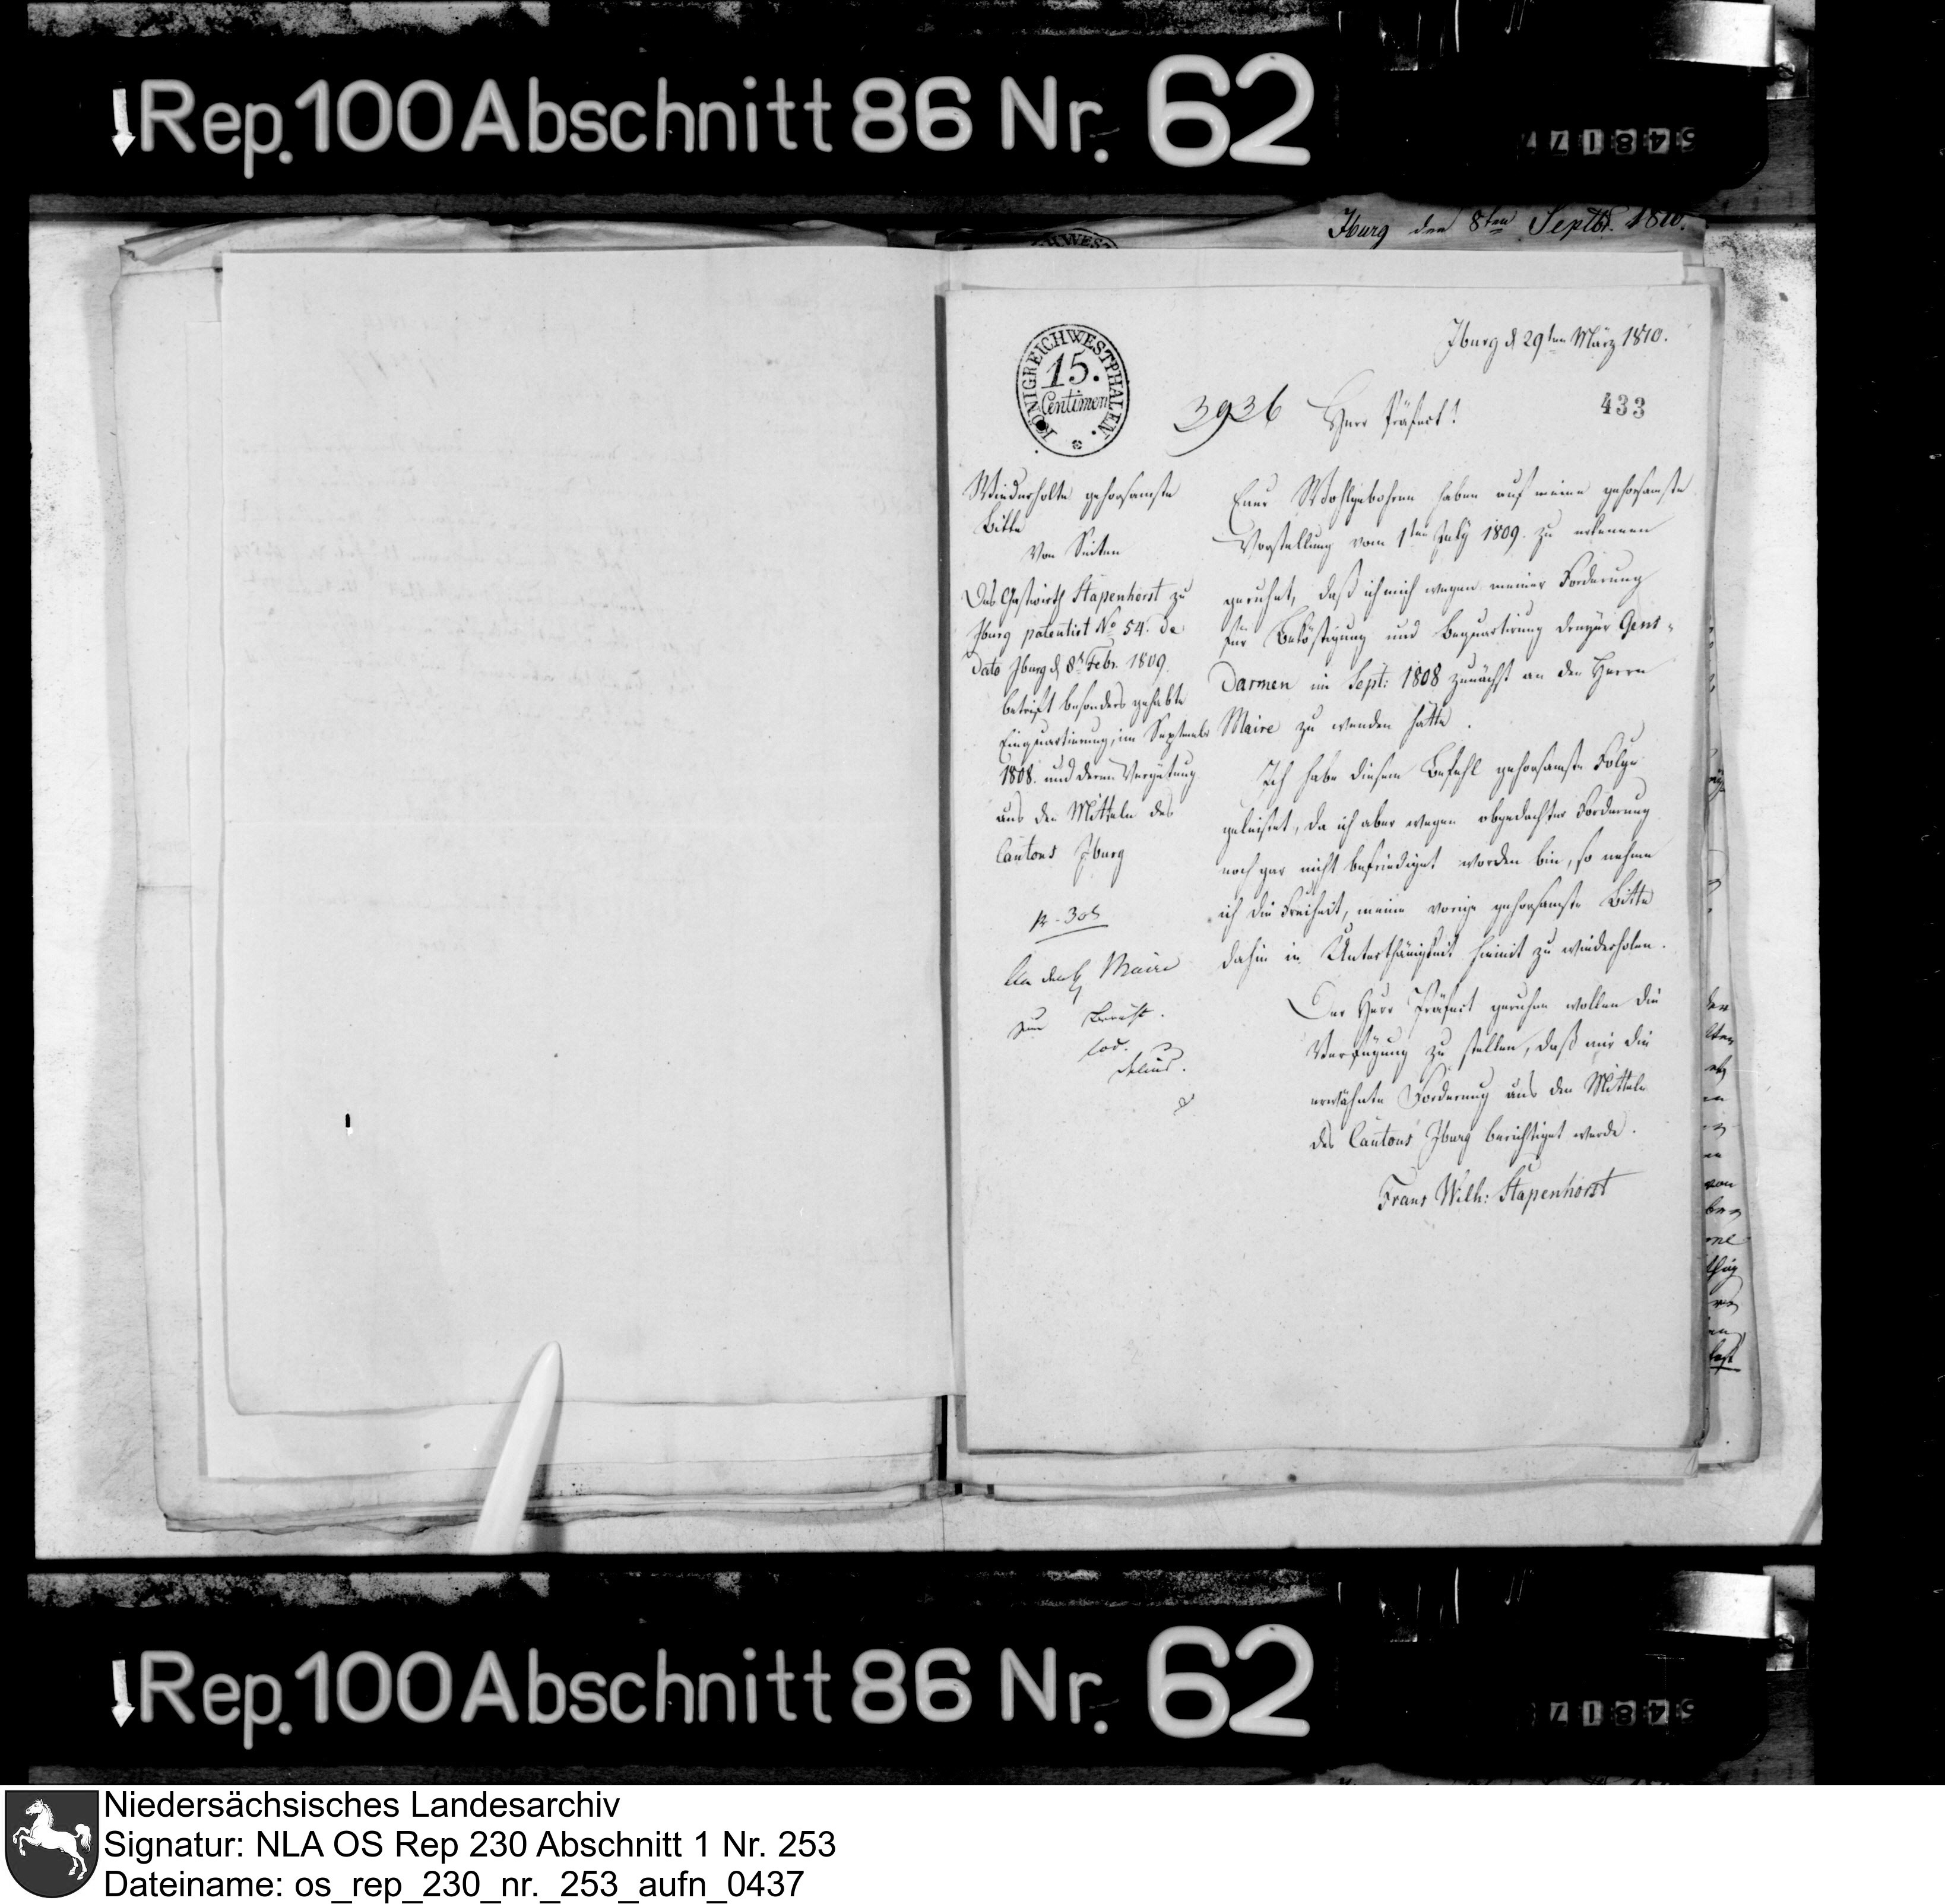 Rep. 100 Abschnitt 86 Nr. 62
54817
Iburg den 8ten Septbr. 1810.
Iburg d 29ten März 1810.
KÖNIGREICH WESTPHALEN.
15.
Centimen
3936
Herr Präfect!
433
Wiederholte gehorsamste
Bitte
Von Seiten
Des Gastwirth Stapenhorst zu
Iburg patentirt No 54. de
dato Iburg d 8t Febr. 1809.
betrift besonders gehabte
Einquartierung, im September
1808. und deren Vergütung
aus den Mitteln des
Cantons Iburg
An den H Maire
zum Bericht.
Delius.
Euer Wohlgebohren haben auf meine gehorsamste
Vorstellung vom 1ten July 1809. zu erkennen
geruhet, daß ich mich wegen meiner Forderung
für Beköstigung und Bequartirung Gens-
darmen im Sept: 1808 zunächst an den Herrn
Maire zu wenden hätte.
Ich habe diesem Befehl gehorsamste Folge
geleistet, da ich aber wegen obgedachter Forderung
noch gar nicht befriediget worden bin, so nehme
ich die Freiheit, meine vorige gehorsamste Bitte
dahin in Unterthänigkeit hiemit zu wiederholen.
Der Herr Präfect geruhen wollen die
Verfügung zu stellen, daß mir die
erwähnte Forderung aus den Mitteln
des Cantons Iburg berichtiget werde.
Frans Wilh: Stapenhorst
Rep. 100 Abschnitt 86 Nr. 62
54817
Niedersächsisches Landesarchiv
Signatur: NLA OS Rep 230 Abschnitt 1 Nr. 253
Dateiname: os_rep_230_nr._253_aufn_0437